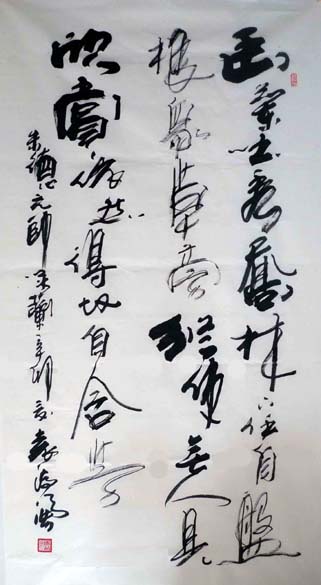 幽蘭吐秀喬林下仍自盤
根眾草旁縱使無人見
欣賞依然得地自含芳
朱德元帥詠蘭